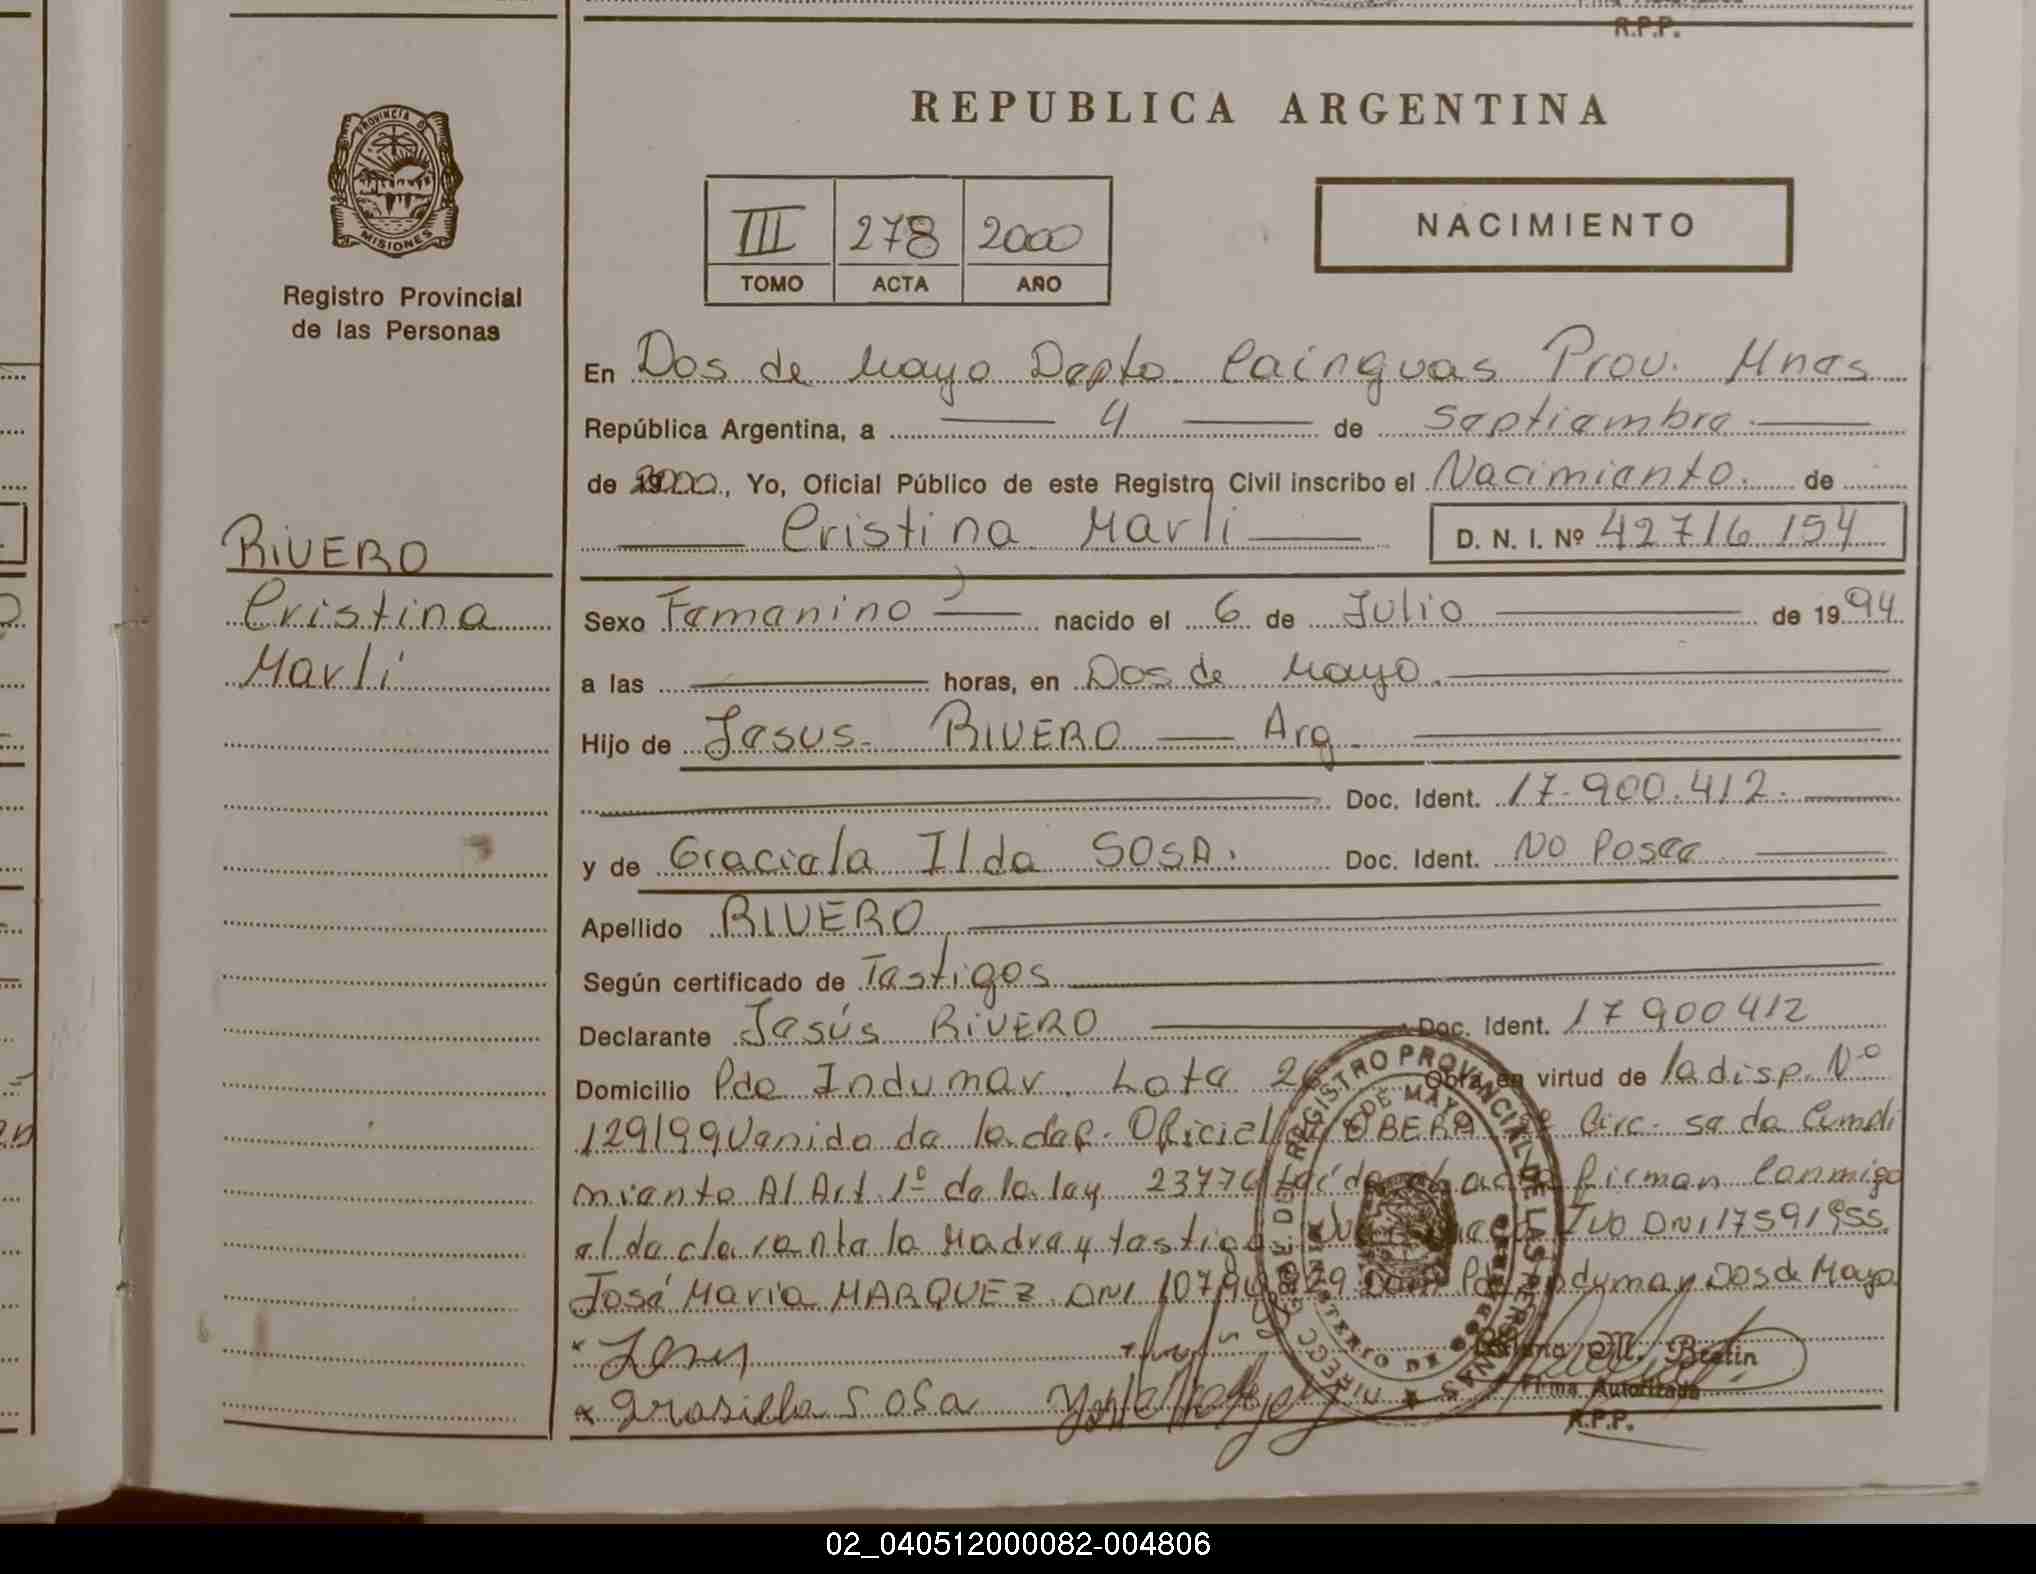 R.P.P.
REPUBLICA ARGENTINA
PROVINCIA D
MISIONES
Registro Provincial
de las Personas
III 278 2000
TOMO ACTA AÑO
NACIMIENTO
En Dos de Mayo Depto Cainguas Prov. Mnes
República Argentina, a 4 de Septiembre
de 2000, Yo, Oficial Público de este Registro Civil inscribo el Nacimiento. de
Cristina Marli D. N. I. Nº 42716154
RIVERO
Cristina
Marli
Sexo Femenino nacido el 6 de Julio de 1994
a las horas, en Dos de Mayo.
Hijo de Jesus. RIVERO Arg.
Doc. Ident. 17.900.412.
y de Graciela Ilda SOSA. Doc. Ident. No Posee
Apellido RIVERO
Según certificado de Testigos
Declarante Jesús RIVERO Doc. Ident. 17900412
Domicilio Pde Indumar. Lote 26 Obra en virtud de la disp. Nº
129/99 Venido de la del. Oficial OBERA 2º Circ. se da Cumpli
miento Al Art. 1º de la ley 23776 firman Conmigo
el declarante la Madre y testigo IVO DNI 17591955
José Maria MARQUEZ. DNI Dom Pde Indumar Dos de Mayo
Jesus
Grasiella Sosa
REGISTRO PROVINCIAL DE LAS PERSONAS
DE MAYO
MINISTERIO DE GOBIERNO
M. Bretin
Firma Autorizada
R.P.P.
02_040512000082-004806